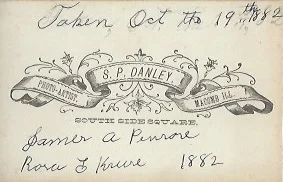 Taken Oct the 19th 1882
S. P. DANLEY.
PHOTO-ARTIST. MACOMB ILL.
SOUTH SIDE SQUARE.
A Penrose
Rosa E 1882